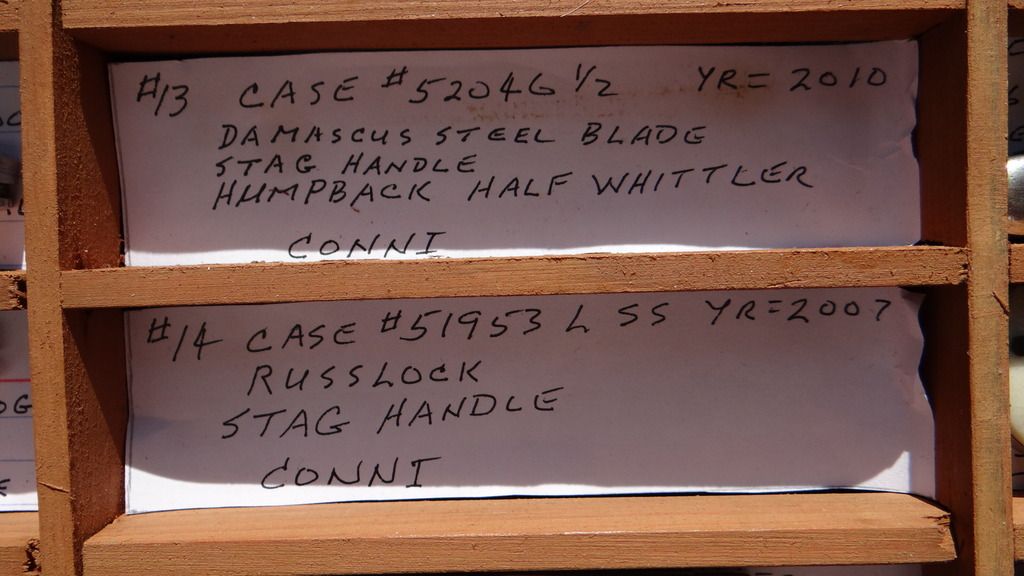 #13 CASE #52046 1/2 YR= 2010
DAMASCUS STEEL BLADE
STAG HANDLE
HUMPBACK HALF WHITTLER
CONNI
#14 CASE #51953 L SS YR=2007
RUSSLOCK
STAG HANDLE
CONNI